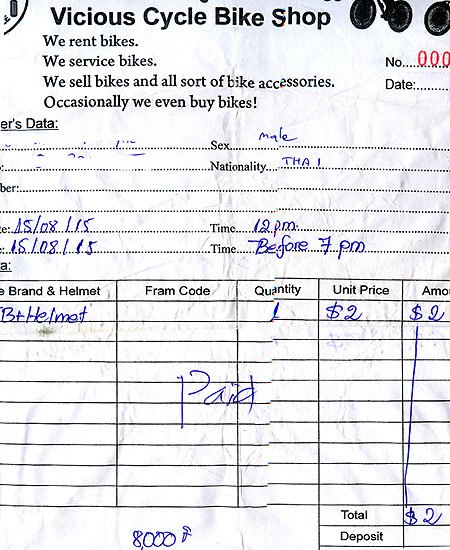 Vicious Cycle Bike Shop
We rent bikes.
We service bikes.
We sell bikes and all sort of bike accessories.
Occasionally we even buy bikes!
No....000
Date:......
er's Data:
Sex male
Nationality.... THAI
ber:
e: 15/08/15 Time 12pm
e: 15/08/15 Time Before 7 pm
a:
e Brand & Helmet Fram Code Quantity Unit Price Amo
B+Helmet 1 $2 $2
Paid
Total $2
Deposit
8,000